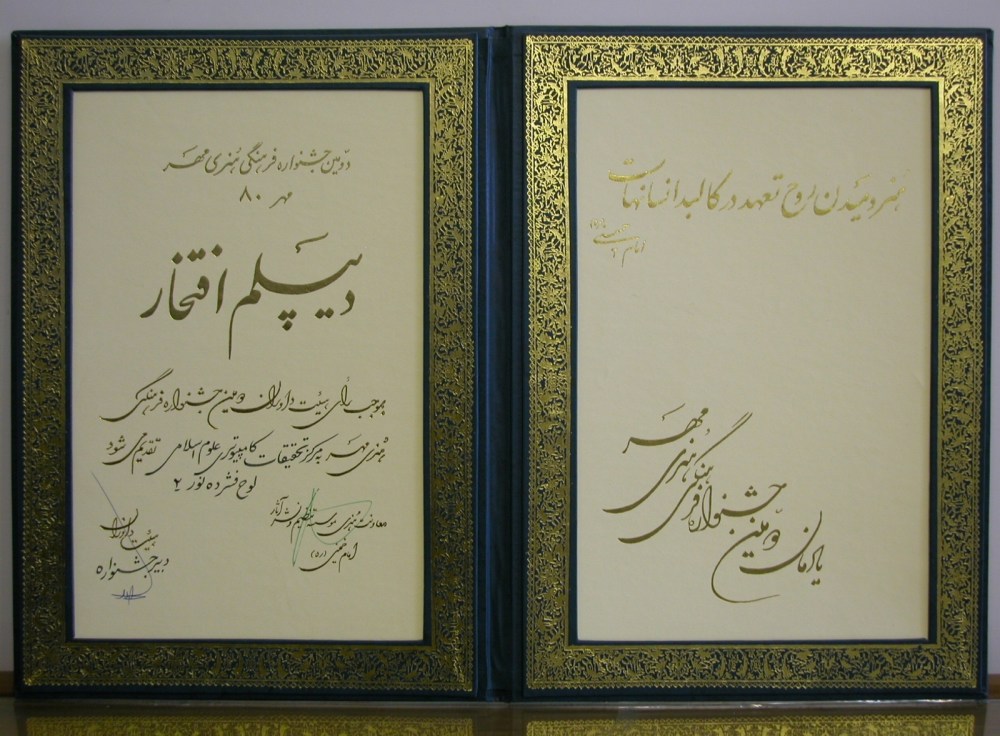 هنر دمیدن روح تعهد در کالبد انسانهاست
امام خمینی (ره)
یادمان دومین جشنواره فرهنگی هنری مهر
دوّمین جشنواره فرهنگی هُنری مهر
مهر ۸۰
دیپلم افتخار
بموجب رأی هیئت داوران دومین جشنواره فرهنگی
هنری مهر به مرکز تحقیقات کامپیوتری علوم اسلامی تقدیم می شود
لوح فشرده نور ۲
معاونت هنری موسسه تنظیم و نشر آثار
امام خمینی (ره)
هیئت داوران
دبیر جشنواره